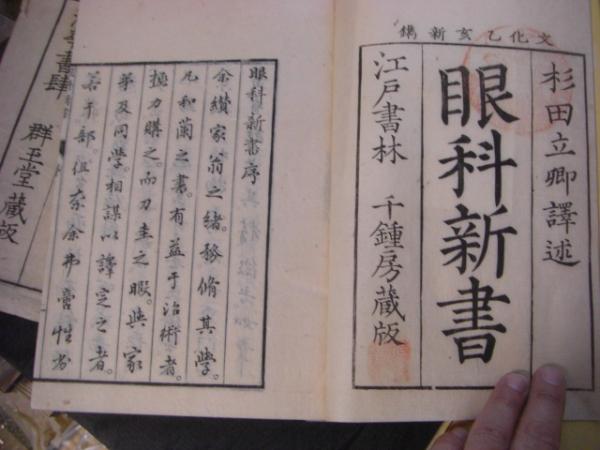 文化乙亥新鐫
杉田立卿譯述
眼科新書
江戸書林 千鍾房蔵版
眼科新書序
余纉家翁之緒。務脩其學。
凡和蘭之書。有益于治術者。
極力購之。而刀圭之暇。與家
弟及同學。相謀以譯定之者。
若干部。但奈余弗啻性劣
書肆
群玉堂蔵版